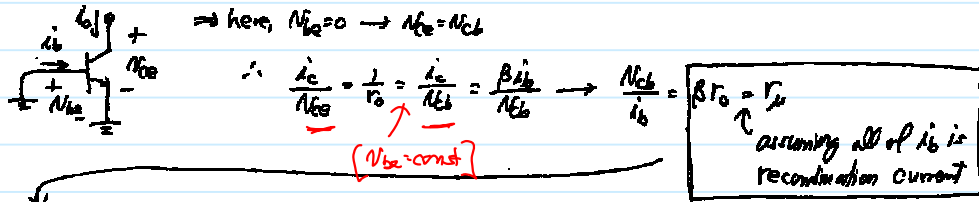 ⇒ here, v_be = 0 → v_ce = v_cb
i_c
i_b
+
v_ce
−
+ v_be −
∴ i_c/v_ce = 1/r_o = i_c/v_cb = βi_b/v_cb → v_cb/i_b = βr_o = r_μ
[v_be = const]
assuming all of i_b is
recombination current